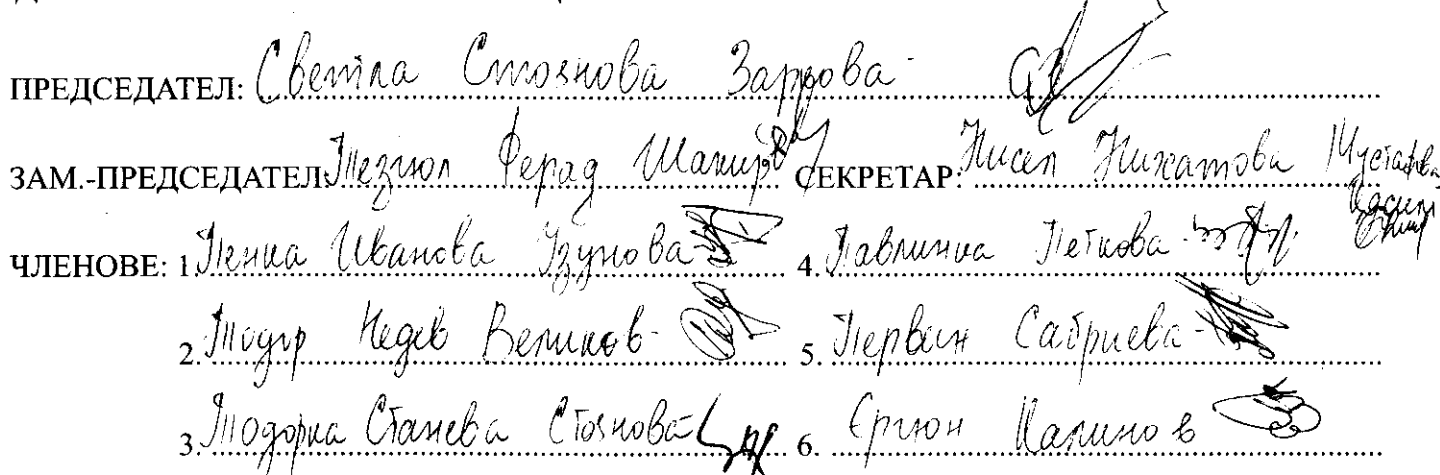 ПРЕДСЕДАТЕЛ: Светла Стоянова
ЗАМ.-ПРЕДСЕДАТЕЛ: Тезгюл Ферад Шакир СЕКРЕТАР: Нихатова Мустафова
ЧЛЕНОВЕ: 1. Пенка Иванова Узунова 4. Павлинка Петкова
2. Тодор Недев Великов 5. Первин Сабриева
3. Тодорка Станева Стоянова 6. Ергюн Калинов